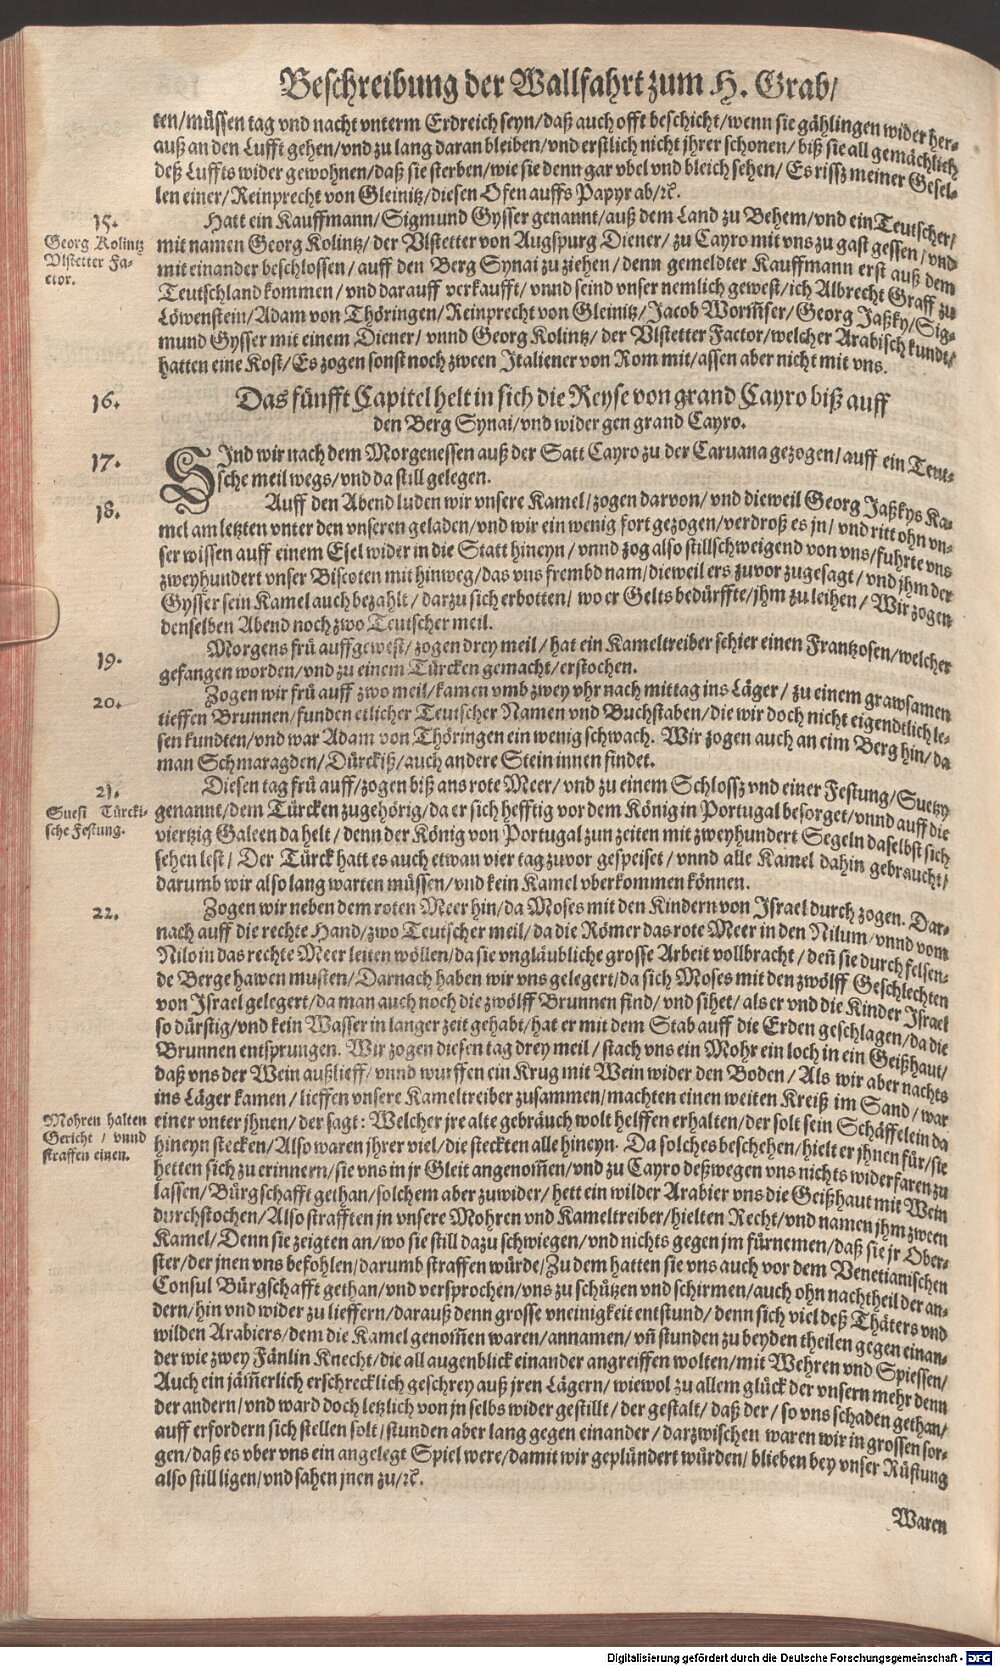 Beschreibung der Wallfahrt zum H. Grab/
ten/müssen tag vnd nacht vnterm Erdreich seyn/daß auch offt beschicht/wenn sie gählingen wider her-
auß an den Lufft gehen/vnd zu lang daran bleiben/vnd erstlich nicht jhrer schonen/biß sie all gemächlich
deß Luffts wider gewohnen/daß sie sterben/wie sie denn gar vbel vnd bleich sehen/Es rissz meiner Gesel-
len einer/Reinprecht von Gleinitz/diesen Ofen auffs Papyr ab/ꝛc.
15.
Georg Kolintz
Vlstetter Fa-
ctor.
Hatt ein Kauffmann/Sigmund Gysser genannt/auß dem Land zu Behem/vnd ein Teutscher/
mit namen Georg Kolintz/der Vlstetter von Augspurg Diener/zu Cayro mit vns zu gast gessen/vnd
mit einander beschlossen/auff den Berg Synai zu ziehen/denn gemeldter Kauffmann erst auß dem
Teutschland kommen/vnd darauff verkaufft/vnnd seind vnser nemlich gewest/ich Albrecht Graff zu
Löwenstein/Adam von Thöringen/Reinprecht von Gleinitz/Jacob Worm̃ser/Georg Jaßky/Sig-
mund Gysser mit einem Diener/vnnd Georg Kolintz/der Vlstetter Factor/welcher Arabisch kundt/
hatten eine Kost/Es zogen sonst noch zween Italiener von Rom mit/assen aber nicht mit vns.
16.
Das fünfft Capitel helt in sich die Reyse von grand Cayro biß auff
den Berg Synai/vnd wider gen grand Cayro.
17.
SInd wir nach dem Morgenessen auß der Satt Cayro zu der Caruana gezogen/auff ein Teut-
sche meil wegs/vnd da still gelegen.
18.
Auff den Abend luden wir vnsere Kamel/zogen darvon/vnd dieweil Georg Jaßkys Ka-
mel am letzten vnter den vnseren geladen/vnd wir ein wenig fort gezogen/verdroß es jn/vnd ritt ohn vn-
ser wissen auff einem Esel wider in die Statt hineyn/vnnd zog also stillschweigend von vns/fuhrte vns
zweyhundert vnser Biscoten mit hinweg/das vns frembd nam/dieweil ers zuvor zugesagt/vnd jhm der
Gysser sein Kamel auch bezahlt/darzu sich erbotten/wo er Gelts bedürffte/jhm zu leihen/Wir zogen
denselben Abend noch zwo Teutscher meil.
19.
Morgens frü auffgewest/zogen drey meil/hat ein Kameltreiber schier einen Frantzosen/welcher
gefangen worden/vnd zu einem Türcken gemacht/erstochen.
20.
Zogen wir frü auff zwo meil/kamen vmb zwey vhr nach mittag ins Läger/zu einem grawsamen
tieffen Brunnen/funden etlicher Teutscher Namen vnd Buchstaben/die wir doch nicht eigendtlich le-
sen kundten/vnd war Adam von Thöringen ein wenig schwach. Wir zogen auch an eim Berg hin/da
man Schmaragden/Dürckiß/auch andere Stein innen findet.
21.
Suesi Türcki-
sche Festung.
Diesen tag frü auff/zogen biß ans rote Meer/vnd zu einem Schlossz vnd einer Festung/Suetzy
genannt/dem Türcken zugehörig/da er sich hefftig vor dem König in Portugal besorget/vnnd auff die
viertzig Galeen da helt/denn der König von Portugal zun zeiten mit zweyhundert Segeln daselbst sich
sehen lest/Der Türck hatt es auch etwan vier tag zuvor gespeiset/vnnd alle Kamel dahin gebraucht/
darumb wir also lang warten müssen/vnd kein Kamel vberkommen können.
22.
Zogen wir neben dem roten Meer hin/da Moses mit den Kindern von Israel durch zogen. Dar-
nach auff die rechte Hand/zwo Teutscher meil/da die Römer das rote Meer in den Nilum/vnnd vom
Nilo in das rechte Meer leiten wöllen/da sie vngläubliche grosse Arbeit vollbracht/deñ sie durch felsen-
de Berge hawen musten/Darnach haben wir vns gelegert/da sich Moses mit den zwölff Geschlechten
von Israel gelegert/da man auch noch die zwölff Brunnen find/vnd sihet/als er vnd die Kinder Israel
so dürstig/vnd kein Wasser in langer zeit gehabt/hat er mit dem Stab auff die Erden geschlagen/da die
Brunnen entsprungen. Wir zogen diesen tag drey meil/stach vns ein Mohr ein loch in ein Geißhaut/
daß vns der Wein außlieff/vnnd wurffen ein Krug mit Wein wider den Boden/Als wir aber nachts
ins Läger kamen/lieffen vnsere Kameltreiber zusammen/machten einen weiten Kreiß im Sand/war
Mohren halten
Gericht/vnnd
straffen einen.
einer vnter jhnen/der sagt: Welcher jre alte gebräuch wolt helffen erhalten/der solt sein Schäffelein da
hineyn stecken/Also waren jhrer viel/die steckten alle hineyn. Da solches beschehen/hielt er jhnen für/sie
hetten sich zu erinnern/sie vns in jr Gleit angenom̃en/vnd zu Cayro deßwegen vns nichts widerfaren zu
lassen/Bürgschafft gethan/solchem aber zuwider/hett ein wilder Arabier vns die Geißhaut mit Wein
durchstochen/Also strafften jn vnsere Mohren vnd Kameltreiber/hielten Recht/vnd namen jhm zween
Kamel/Denn sie zeigten an/wo sie still dazu schwiegen/vnd nichts gegen jm fürnemen/daß sie jr Ober-
ster/der jnen vns befohlen/darumb straffen würde/Zu dem hatten sie vns auch vor dem Venetianischen
Consul Bürgschafft gethan/vnd versprochen/vns zu schützen vnd schirmen/auch ohn nachtheil der an-
dern/hin vnd wider zu lieffern/darauß denn grosse vneinigkeit entstund/denn sich viel deß Thäters vnd
wilden Arabiers/dem die Kamel genom̃en waren/annamen/vñ stunden zu beyden theilen gegen einan-
der wie zwey Fänlin Knecht/die all augenblick einander angreiffen wolten/mit Wehren vnd Spiessen/
Auch ein jäm̃erlich erschrecklich geschrey auß jren Lägern/wiewol zu allem glück der vnsern mehr denn
der andern/vnd ward doch letzlich von jn selbs wider gestillt/der gestalt/daß der/so vns schaden gethan/
auff erfordern sich stellen solt/stunden aber lang gegen einander/darzwischen waren wir in grossen sor-
gen/daß es vber vns ein angelegt Spiel were/damit wir geplündert würden/blieben bey vnser Rüstung
also still ligen/vnd sahen jnen zu/ꝛc.
Waren
Digitalisierung gefördert durch die Deutsche Forschungsgemeinschaft - DFG